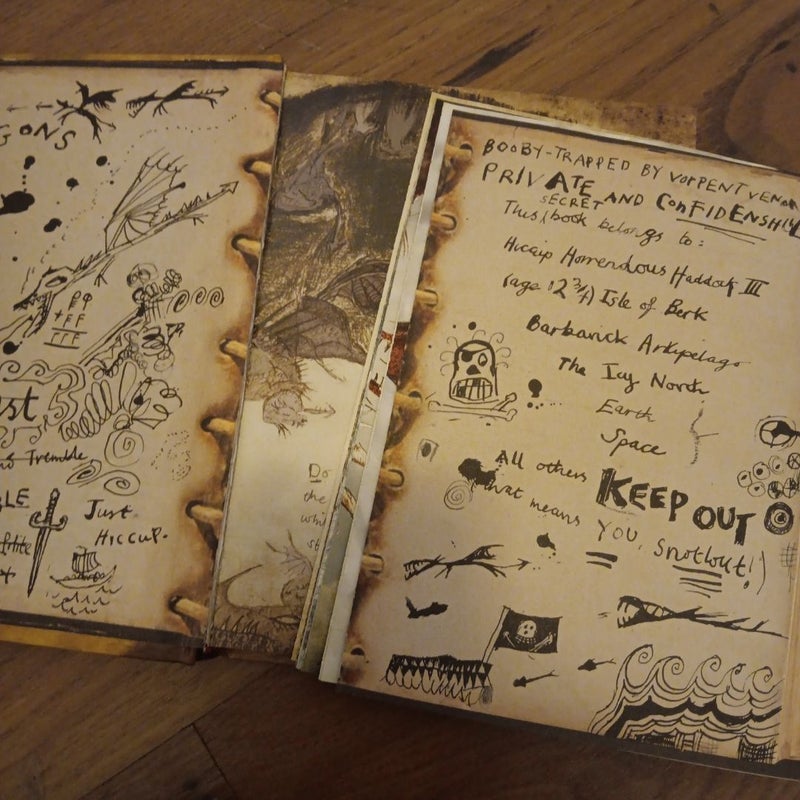 GONS
P9
+FF
FFF
st
Tremble
LE
Just
HICCUP.
Do
the
whi
st
BOOBY-TRAPPED BY VORPENT VENOM
PRIVATE AND CONFIDENSHUL
SECRET
This book belongs to:
Hiccup Horrendous Haddock III
(age 12 3/4) Isle of Berk
Barbarick Arkipelago
The Icy North
Earth
Space
All others KEEP OUT
that means YOU, Snotlout!)